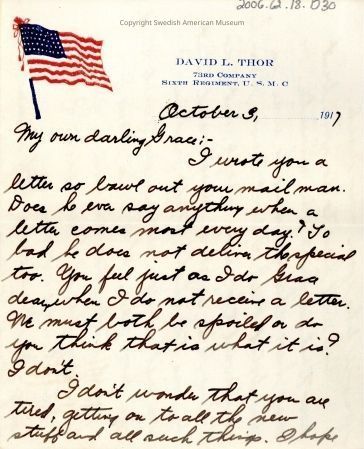 2006.62.18.030
Copyright Swedish American Museum
DAVID L. THOR
73RD COMPANY
SIXTH REGIMENT, U. S. M. C
October 3, 1917
My own darling Grace;-
I wrote you a
letter so bawl out your mail man.
Does he ever say anything when a
letter comes most every day? To
bad he does not deliver the special
too. You feel just as I do Grace
dear, when I do not receive a letter.
We must both be spoiled or do
you think that is what it is?
I don't.
I don't wonder that you are
tired, getting on to all the new
stuff and all such things. I hope